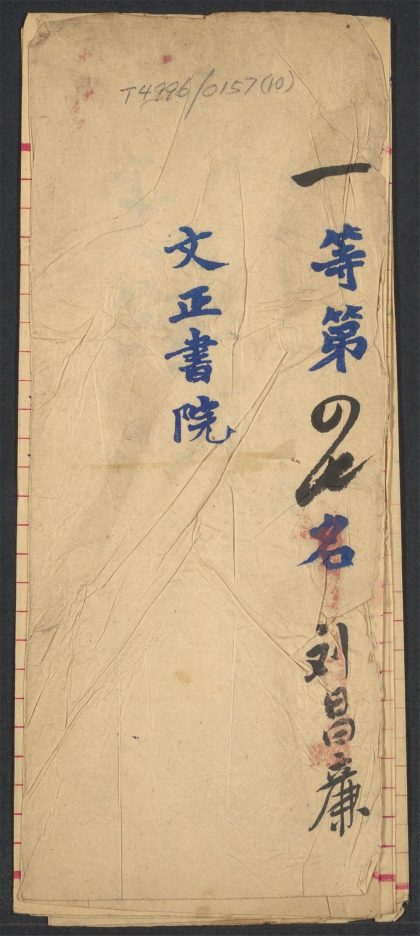 T4996/0157(10)
一等第四七名 刘昌廉
文正書院